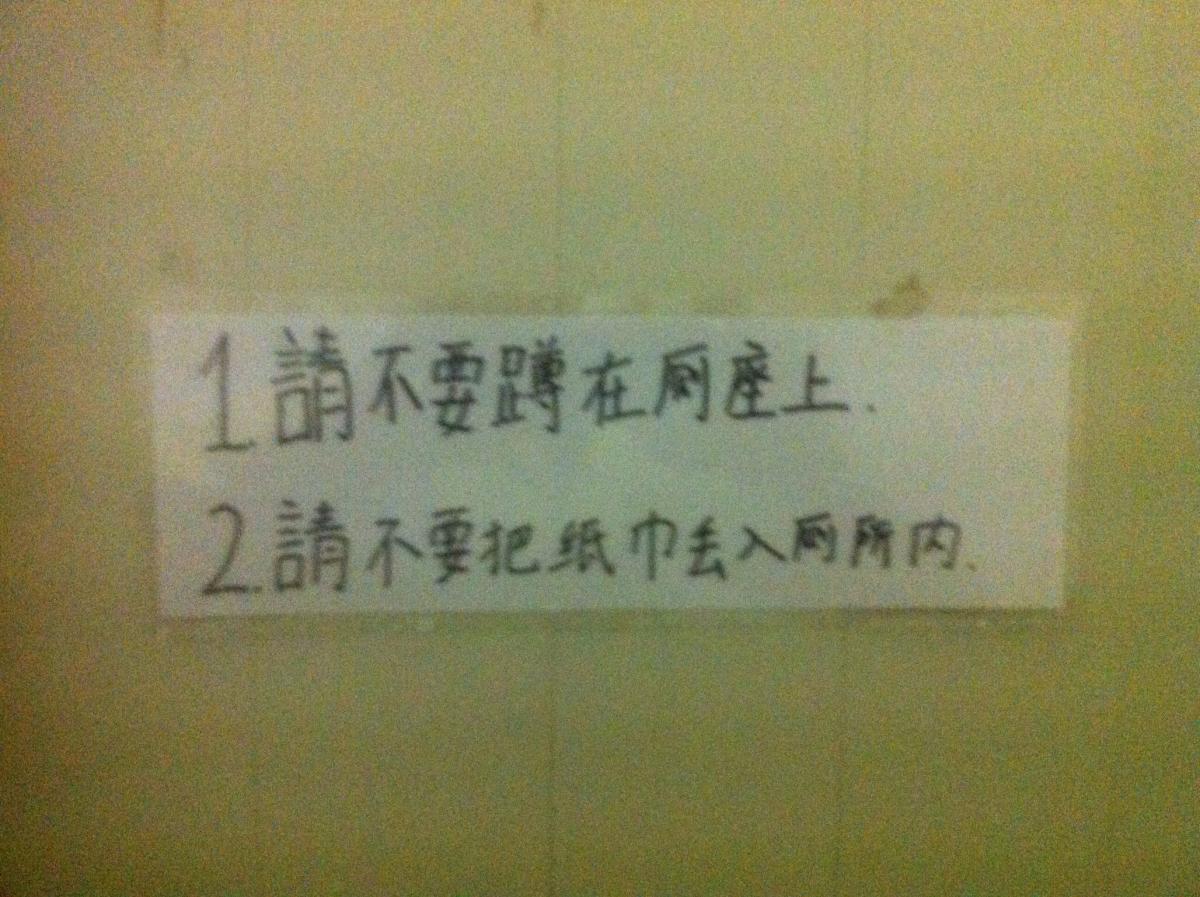 1.請不要蹲在厕座上.
2.請不要把纸巾丢入厕所内.